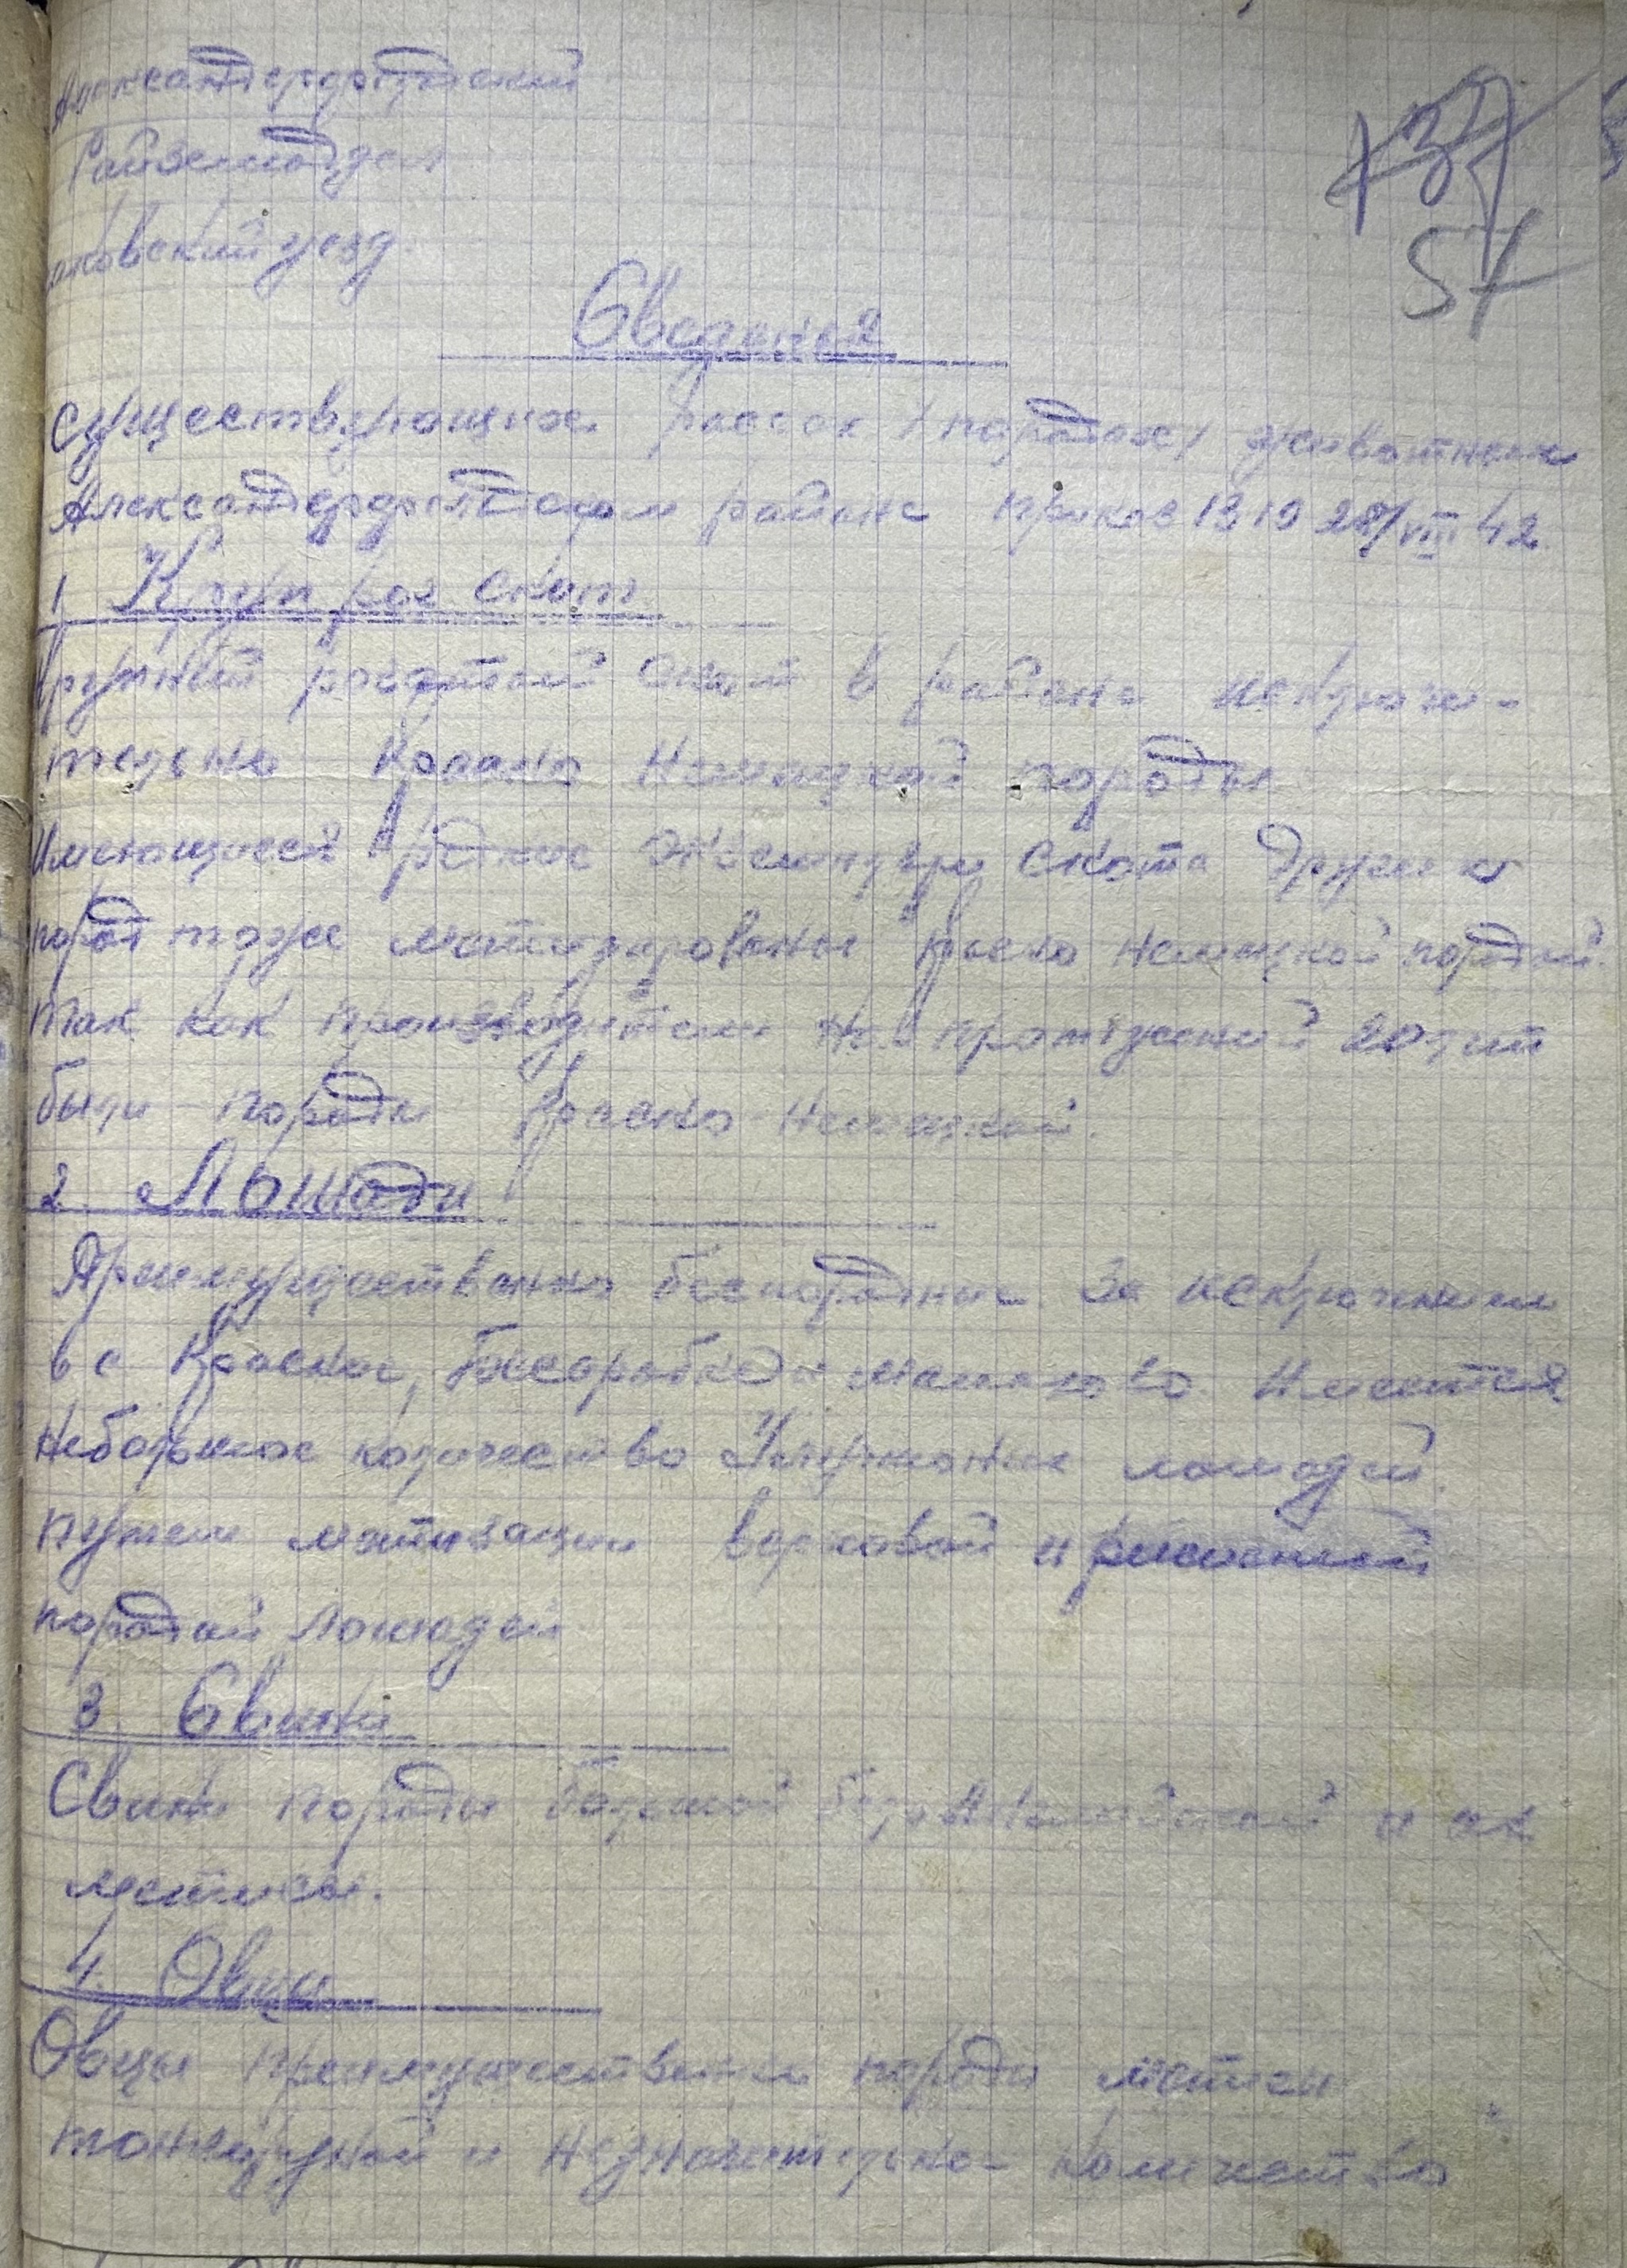 Александерфельдский
Райземотдел
аковский уезд.
137
57
Сведения
Существующих рассах /породах/ животных
Александерфельдском районе приказ 1319 28/VIII 42
1 Круп рог Скот
Крупный рогатый скот в районе исключи-
тельно Красно Немецкой породы
Имеющиеся редкие экземпляры скота других
пород тоже метизированы Красно немецкой породой.
Так как производители на протяжении 20 лет
были породы Красно-Немецкой.
2. Лошади
Преимущественно беспородные. За исключением
в с Красное, и Имеется
Небольшое количество Улучшоных лошадей
путем метизации верховой и рысистой
породой Лошадей
3. Свиньи
Свиньи породы большой бело Английской и их
метисы.
4. Овцы
Овцы преимущественно породы метисы
и незначительное количество